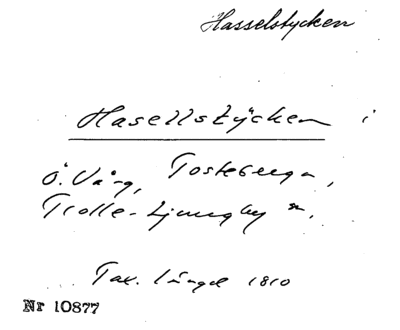 Hasselstycken
Hasellstycken i
Ö. Vång, Tosteberga,
Trolle-Ljungby sn.
Tax. längd 1810
Nr 10877